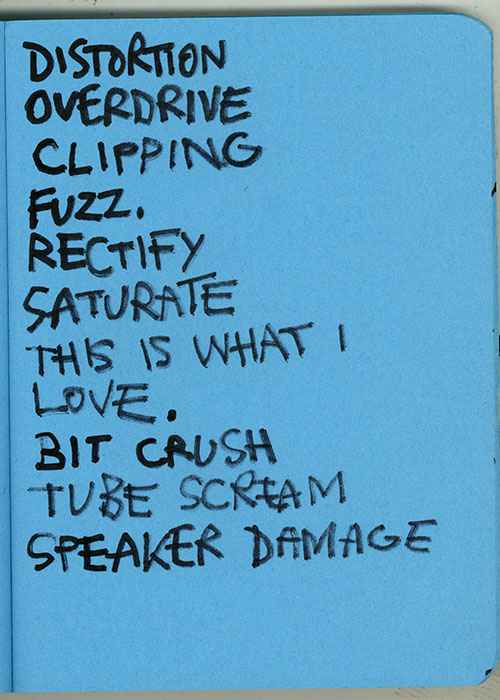 DISTORTION
OVERDRIVE
CLIPPING
FUZZ.
RECTIFY
SATURATE
THIS IS WHAT I
LOVE.
BIT CRUSH
TUBE SCREAM
SPEAKER DAMAGE